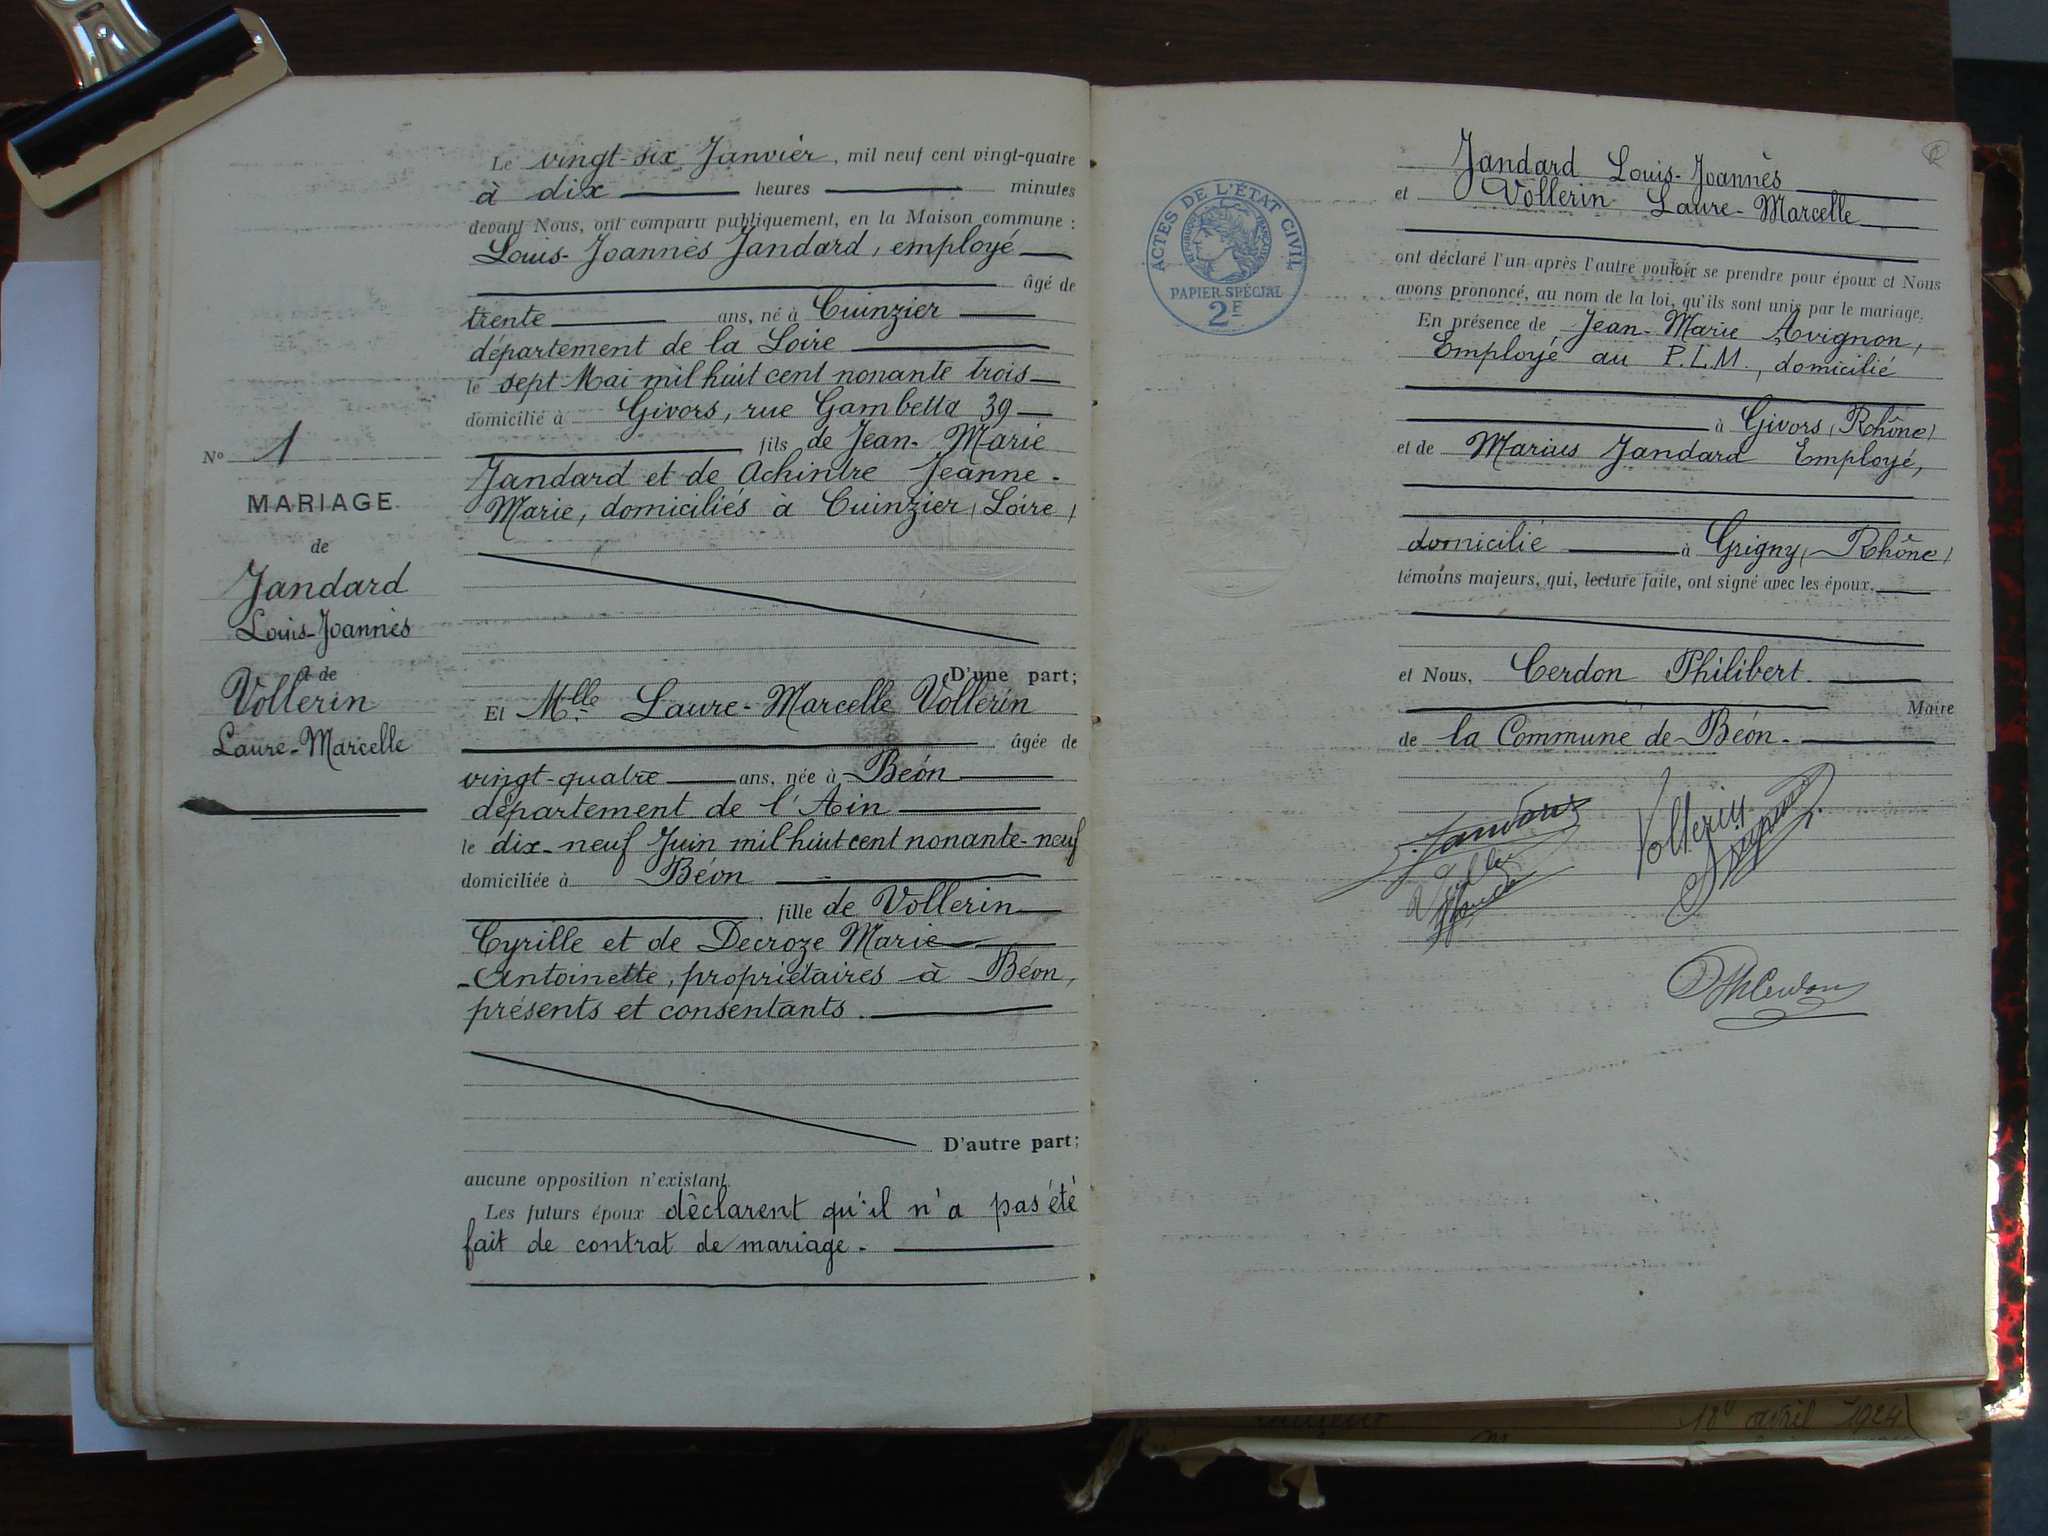 Le vingt-six Janvier, mil neuf cent vingt-quatre
à dix heures minutes
devant Nous, ont comparu publiquement, en la Maison commune :
Louis-Joannès Jandard, employé
âgé de
trente ans, né à Cuinzier
département de la Loire
le sept Mai mil huit cent nonante trois
domicilié à Givors, rue Gambetta 39
fils de Jean-Marie
Jandard et de Achintre Jeanne-
Marie, domiciliés à Cuinzier (Loire)
D'une part;
Et Mlle Laure-Marcelle Vollerin
âgée de
vingt-quatre ans, née à Béon
département de l'Ain
le dix-neuf Juin mil huit cent nonante-neuf
domiciliée à Béon
fille de Vollerin
Cyrille et de Decroze Marie
-Antoinette, propriétaires à Béon,
présents et consentants.
D'autre part;
aucune opposition n'existant.
Les futurs époux déclarent qu'il n'a pas été
fait de contrat de mariage.
No 1
MARIAGE
de
Jandard
Louis-Joannès
et de
Vollerin
Laure-Marcelle
ACTES DE L'ÉTAT CIVIL
RÉPUBLIQUE FRANÇAISE
PAPIER SPÉCIAL
2F
Jandard Louis-Joannès
et Vollerin Laure-Marcelle
ont déclaré l'un après l'autre vouloir se prendre pour époux et Nous
avons prononcé, au nom de la loi, qu'ils sont unis par le mariage.
En présence de Jean-Marie Avignon,
Employé au P.L.M., domicilié
à Givors (Rhône)
et de Marius Jandard Employé,
domicilié à Grigny (Rhône)
témoins majeurs, qui, lecture faite, ont signé avec les époux.
et Nous, Cerdon Philibert.
Maire
de la Commune de Béon.
Jandard
Vollerin
Avignon
Ph Cerdon
18 avril 1924